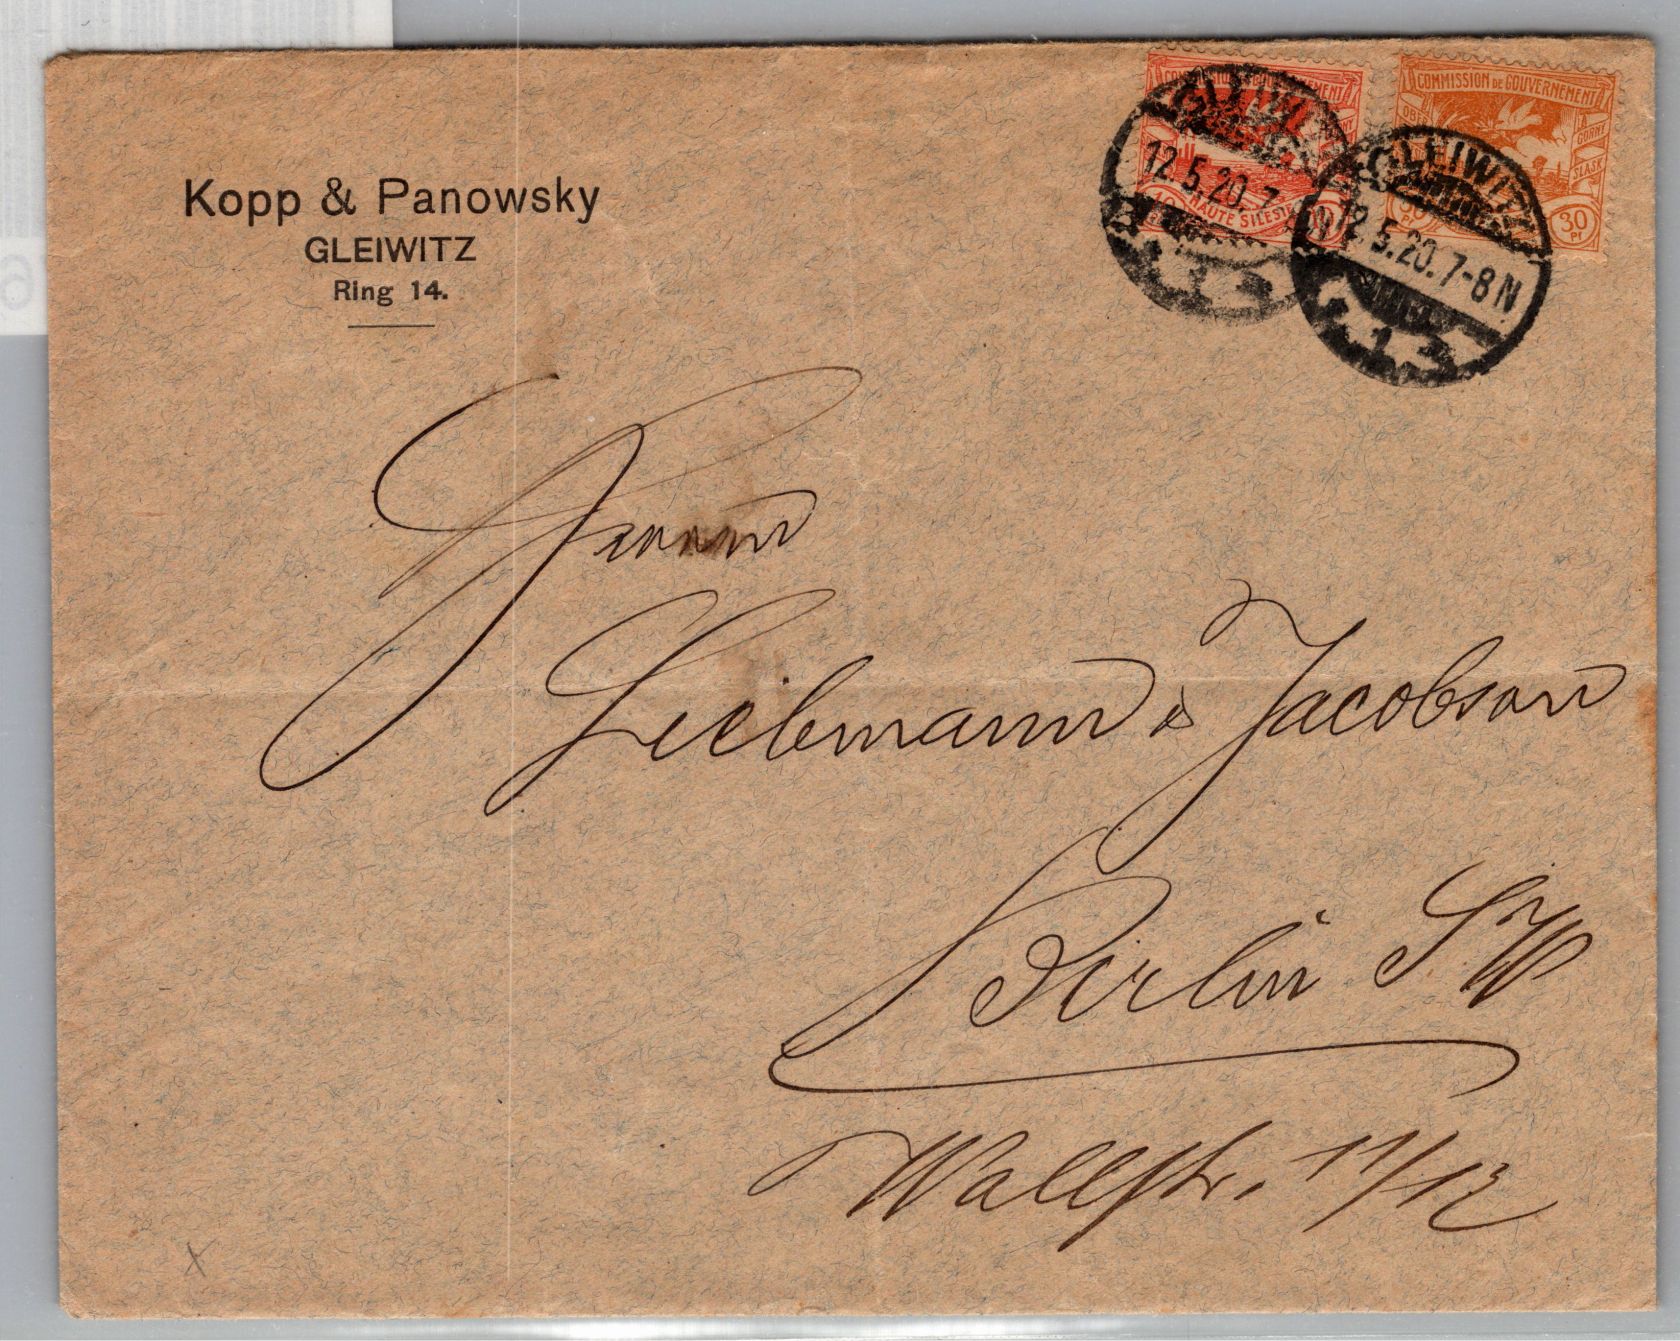 Kopp & Panowsky
GLEIWITZ
Ring 14.
COMMISSION DE GOUVERNEMENT
HAUTE SILESIE
COMMISSION DE GOUVERNEMENT
GORNY
SLASK
30
PF
GLEIWITZ
12.5.20.7
1
GLEIWITZ
12.5.20.7-8N
1
Liebmann & Jacobson
Berlin SW
Wallstr. 11/12
X